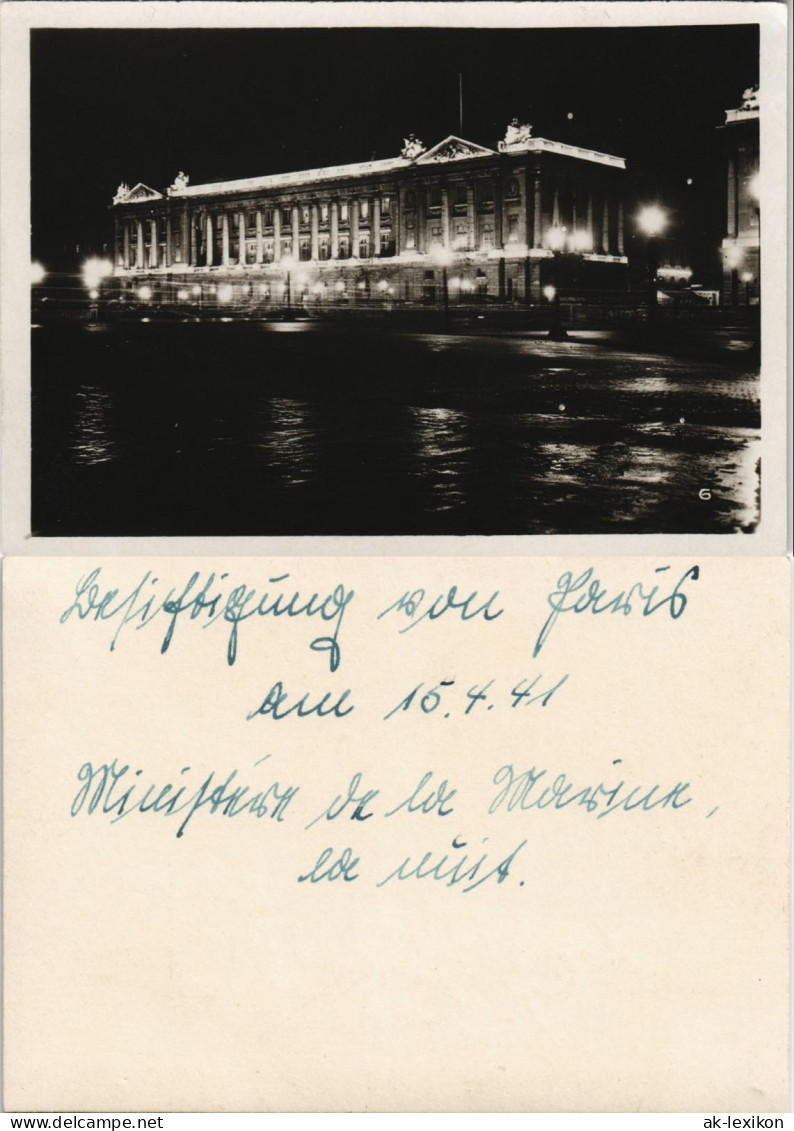 6
Besichtigung von Paris
am 15.4.41
Ministère de la Marine,
la nuit.
ak-lexikon